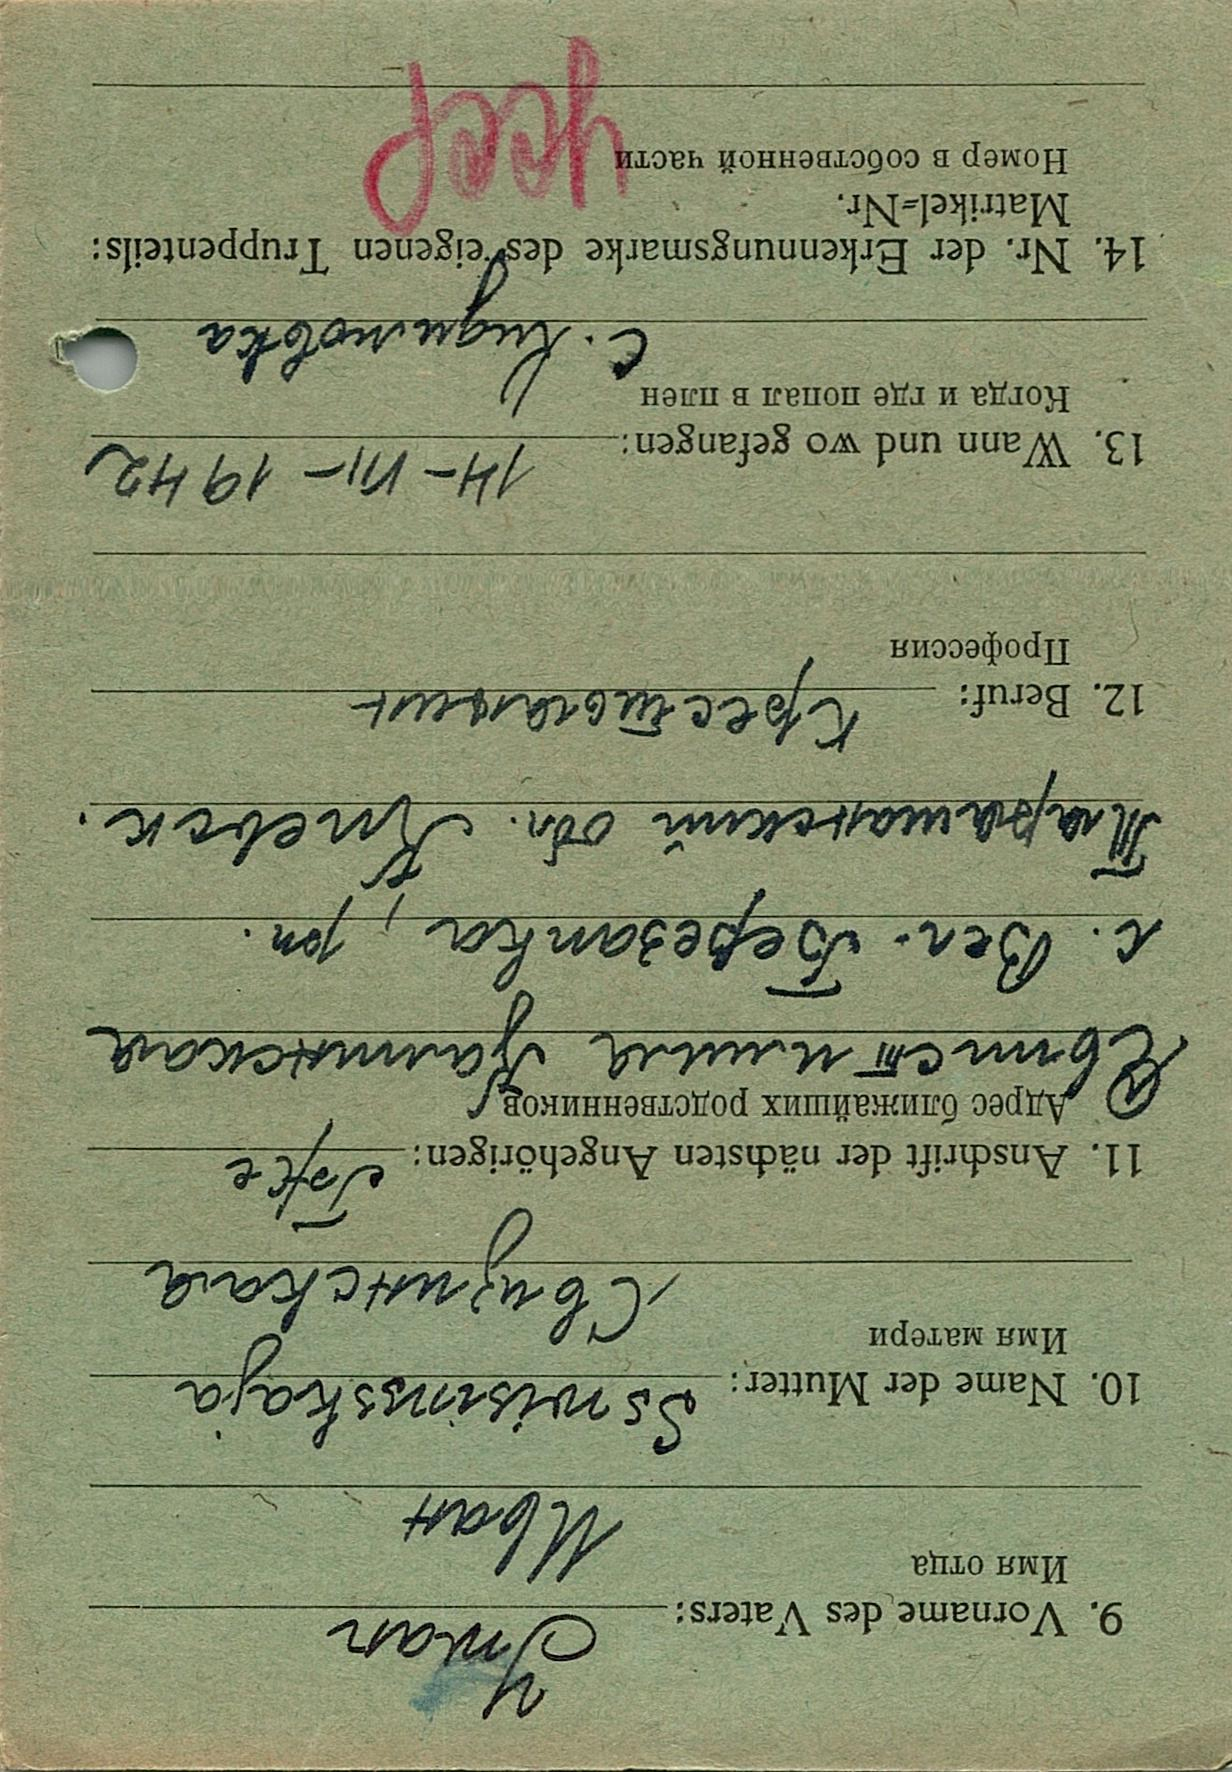 9. Vorname des Vaters: Iwan
Имя отца
Иван
10. Name der Mutter: Sswisinskaja
Имя матери
Свизинская
11. Anschrift der nächsten Angehörigen:
Адрес ближайших родственников
Калинская
с. Вел. Березанка, рн.
Таращанский обл. Киевск.
12. Beruf: Крестьянин
Профессия
13. Wann und wo gefangen: 14-VII-1942
Когда и где попал в плен
с.
14. Nr. der Erkennungsmarke des eigenen Truppenteils:
Matrikel=Nr.
Номер в собственной части